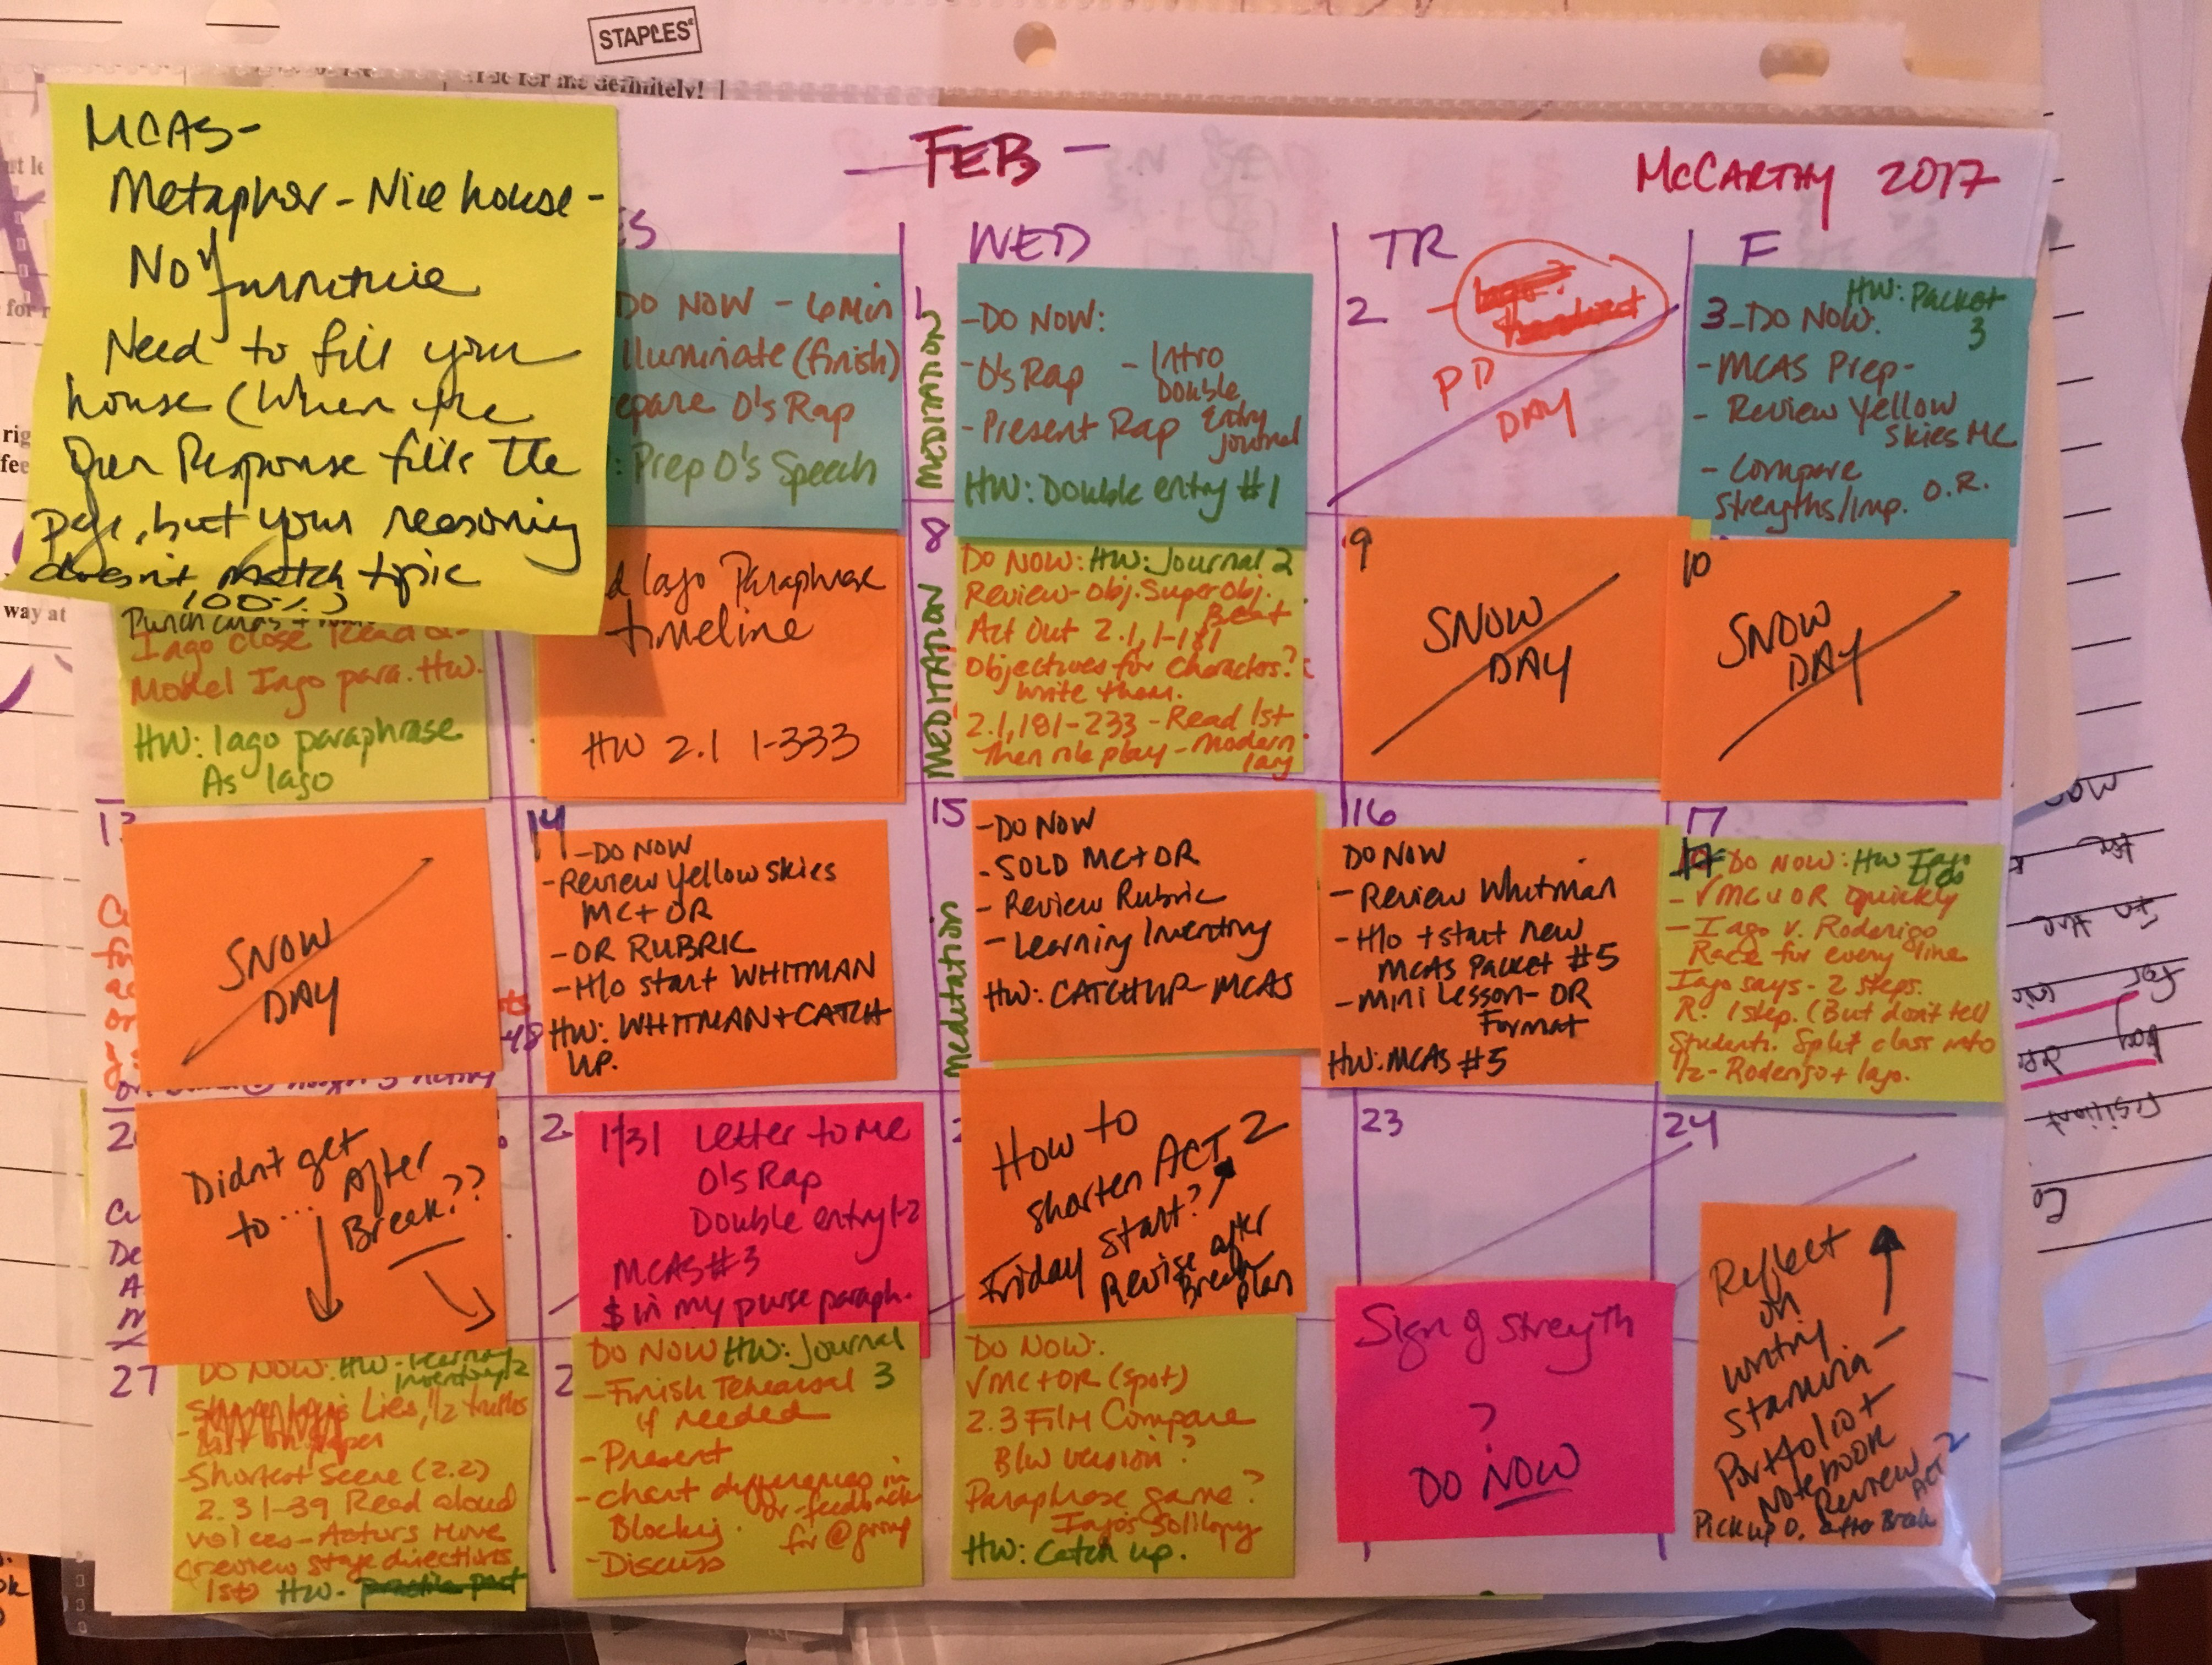 STAPLES
for me definitely!
MCAS-
Metaphor - Nice house -
No furniture
Need to fill your
house (When the
Open Response fills the
page, but your reasoning
doesn't match topic
100%)
FEB -
McCARTHY 2017
ES
WED
TR
F
DO NOW - 6 Min
lluminate (finish)
epare O's Rap
: Prep O's Speech
1
MEDITATION
- DO NOW:
- O's Rap - Intro
Double
Entry
Journal
- Present Rap
HW: Double entry #1
2
PD
DAY
HW: Packet
3
3 - DO NOW:
- MCAS Prep-
- Review Yellow
Skies MC
- Compare
Strengths/Imp. O.R.
Iago close read
Model Iago para. HW.
HW: Iago paraphrase
As Iago
d Iago Paraphrase
timeline
HW 2.1 1-333
8
MEDITATION
DO NOW: HW: Journal 2
Review - Obj. Super Obj.
Beat
Act Out 2.1, 1-181
Objectives for characters?
write them.
2.1, 181-233 - Read 1st
Then role play - Modern
lang
9
SNOW
DAY
10
SNOW
DAY
SNOW
DAY
14
- DO NOW
- Review Yellow Skies
MC + OR
- OR RUBRIC
- H/o start WHITMAN
HW: WHITMAN + CATCH
UP.
15
Meditation
- DO NOW
- SOLD MC + OR
- Review Rubric
- Learning Inventory
HW: CATCHUP - MCAS
16
DO NOW
- Review Whitman
- H/o + start new
MCAS Packet #5
- Mini Lesson - OR
Format
HW: MCAS #5
17
DO NOW: HW Iago
Lies
- √ MC + OR quickly
- Iago v. Roderigo
Race for every line
Iago says - 2 steps.
R. 1 step. (But don't tell
Students. Split class into
1/2 - Roderigo + Iago.
Didn't get
to... After
Break??
2
1/31 Letter to Me
O's Rap
Double entry 1-2
MCAS #3
$ in my purse paraph.
How to
shorten ACT 2
Friday start?
Revise after
Break
plan
23
24
27
DO NOW: HW - Learning
inventory 2
Lies, 1/2 truths
list on paper
- Shortest Scene (2.2)
2.3 1-39 Read aloud
voices - Actors move
(review stage directions
1st) HW -
2
DO NOW HW: Journal
3
- Finish rehearsal
if needed
- Present
- chart differences in
Blocking. or feedback
for @ group
- Discuss
DO NOW:
√ MC + OR (spot)
2.3 Film Compare
B/W version?
Paraphrase game?
Iago's Soliloquy
HW: Catch up.
Sign of strength
?
DO NOW
Reflect
on
writing
stamina -
Portfolio +
Notebook
Review
ACT 2
Pick up O. after Break